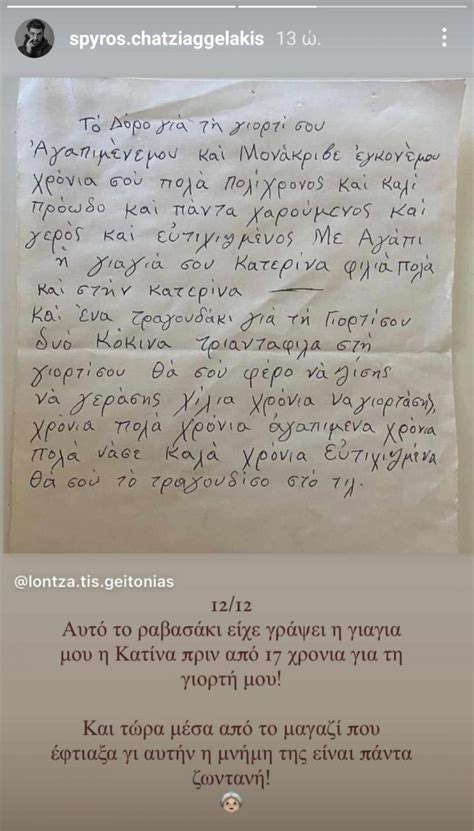 spyros.chatziaggelakis 13 ώ.
Τό Δόρο γιά τή γιορτί σου
Ἀγαπιμένεμου καί Μονάκριβε ἐγκονέμου
χρόνια σού πολά πολίχρονος καί καλί
πρόωδο καί πάντα χαρούμενος καί
γερός καί εὐτιχιζμένος Με Αγάπι
ἡ γιαγιά σου Κατερίνα φιλιά πολά
καί στήν κατερίνα —
Καί ἕνα τραγουδάκι γιά τή Γιορτίσου
δυό Κόκινα τριανταφιλα στή
γιορτίσου θά σού φέρο νά ζίσης
νά γεράσης χίλια χρόνια να γιορτάσης,
χρόνια πολά χρόνια ἀγαπιμενα χρόνια
πολά νάσε καλά χρόνια εὐτιχιζμένα
θά σού τό τραγουδίσο στό τιλ.
@lontza.tis.geitonias
12/12
Αυτό το ραβασάκι είχε γράψει η γιαγια
μου η Κατίνα πριν από 17 χρονια για τη
γιορτή μου!
Και τώρα μέσα από το μαγαζί που
έφτιαξα γι αυτήν η μνήμη της είναι πάντα
ζωντανή!